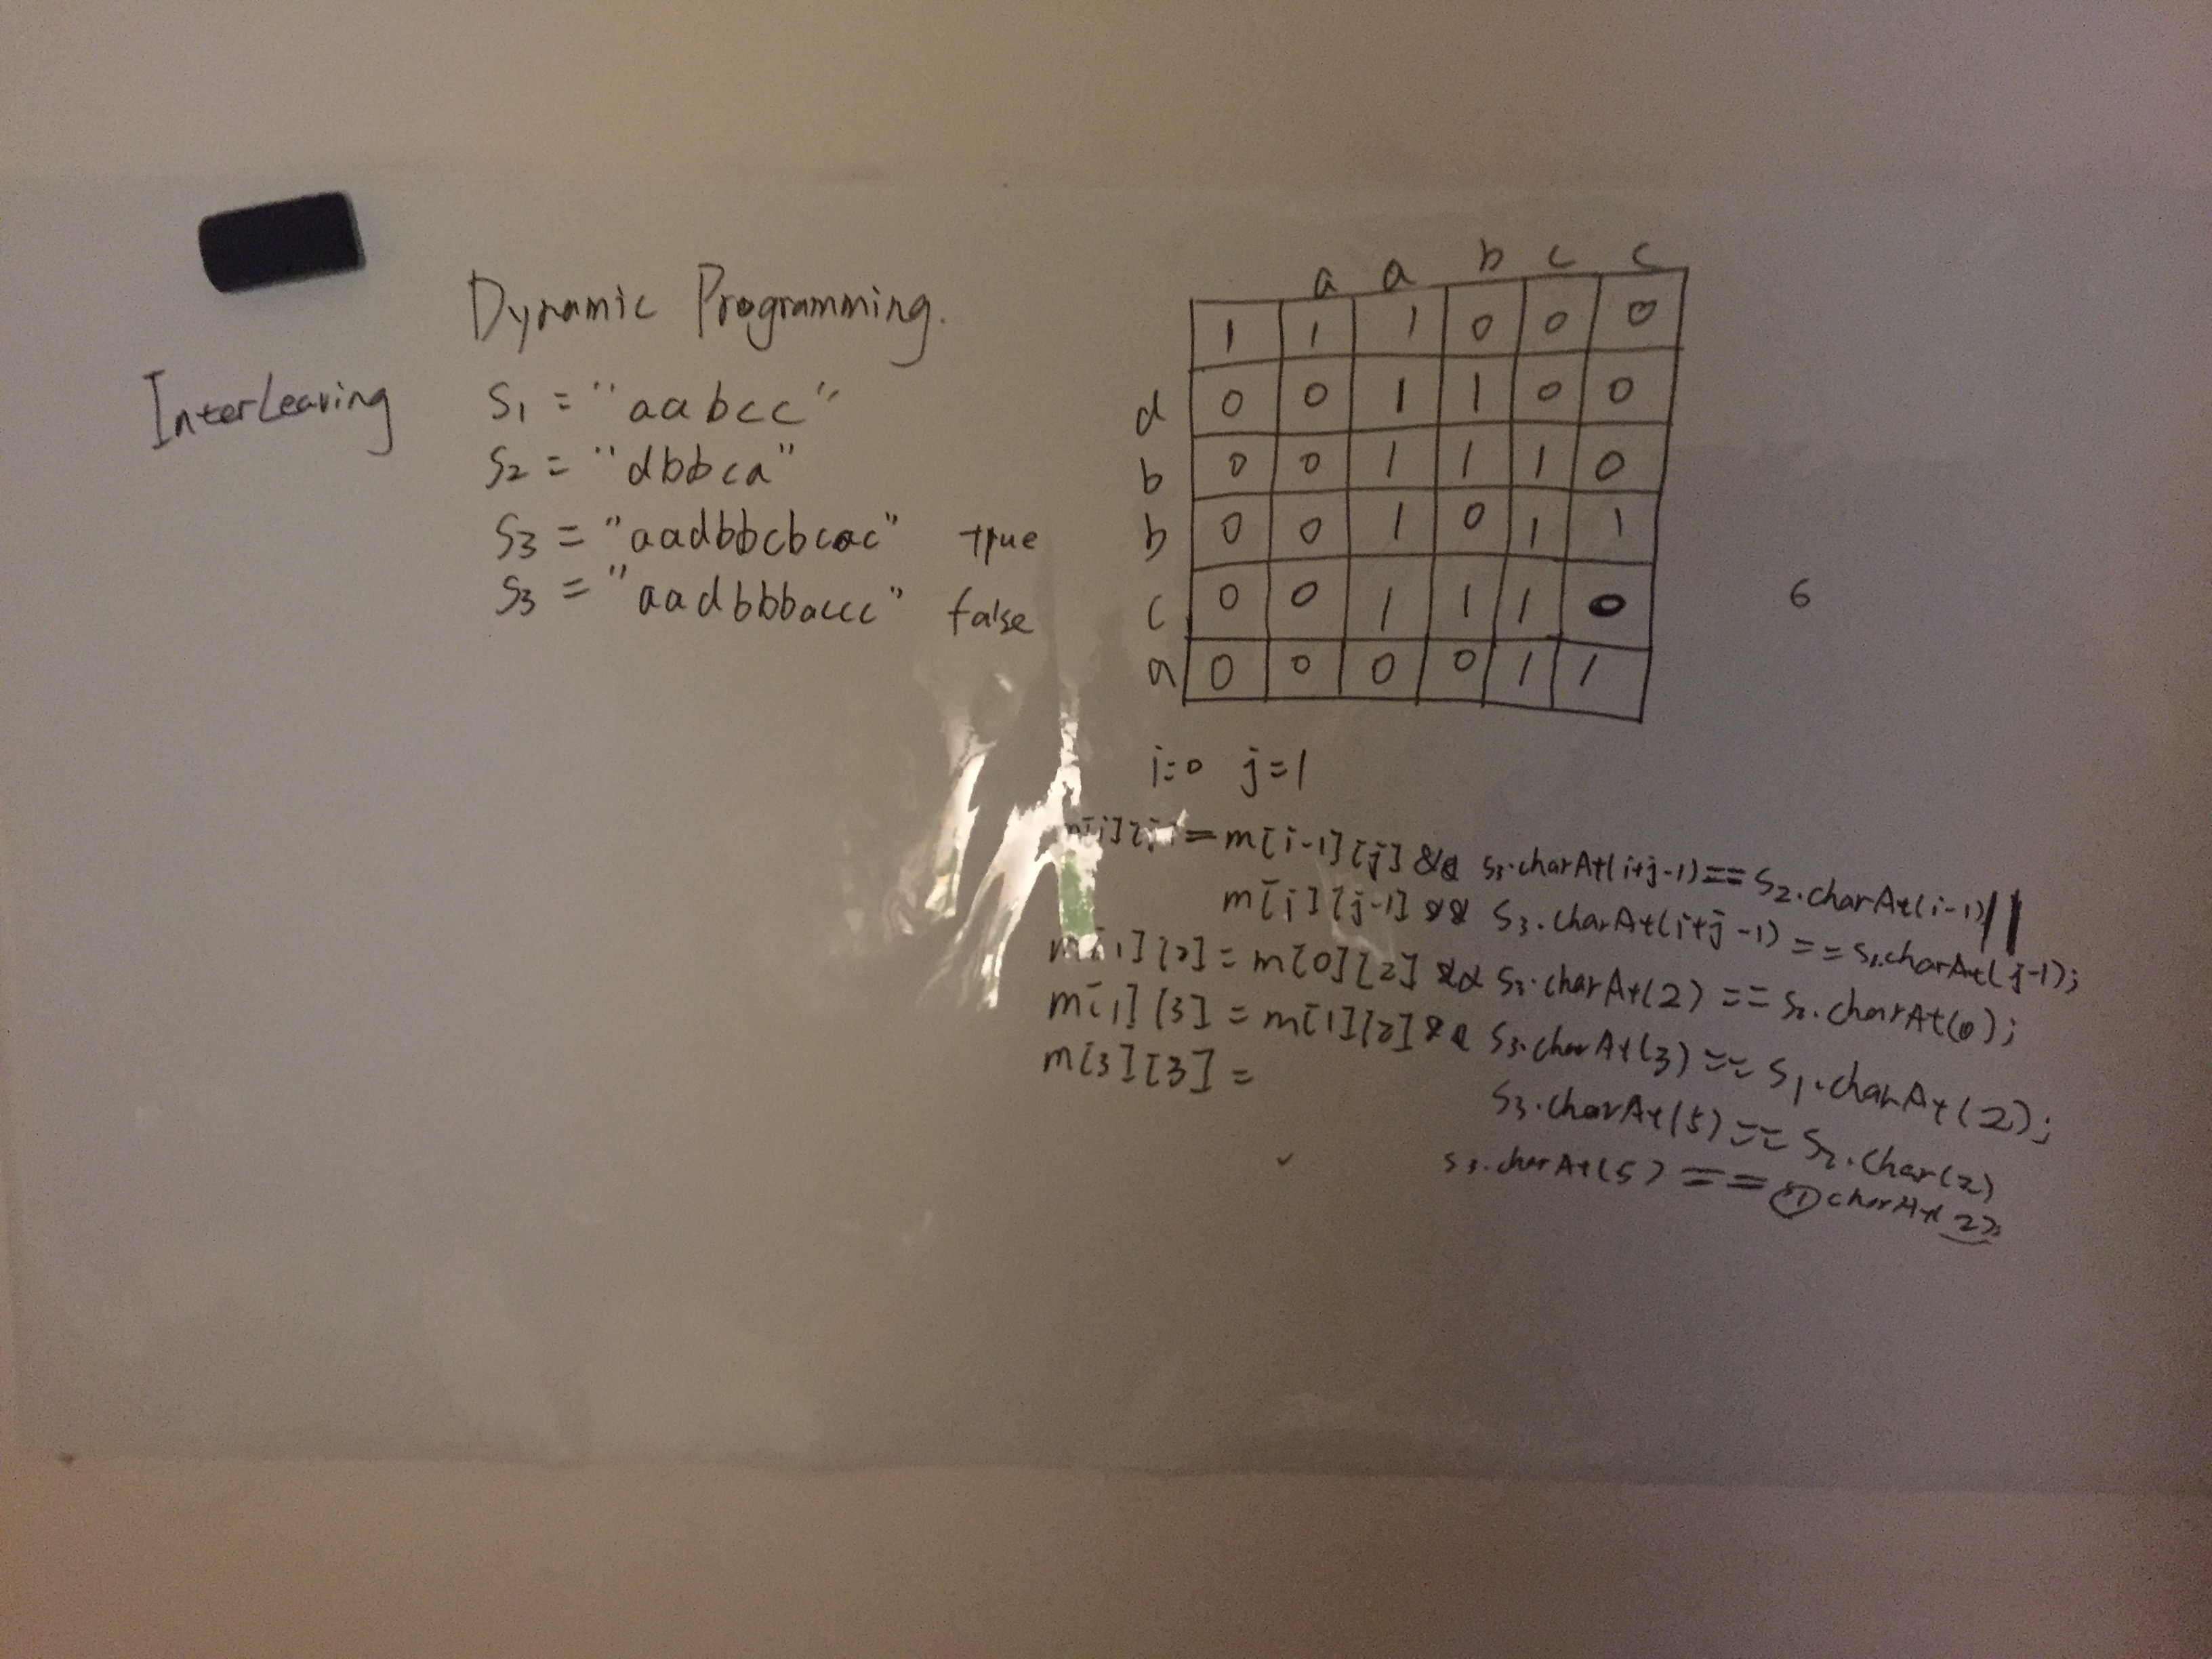 Dynamic Programming.
InterLeaving
S1 = "aabcc"
S2 = "dbbca"
S3 = "aadbbcbcac" true
S3 = "aadbbbaccc" false
a a b c c
1 1 1 0 0 0
d 0 0 1 1 0 0
b 0 0 1 1 1 0
b 0 0 1 0 1 1
c 0 0 1 1 1 0
a 0 0 0 0 1 1
6
i=0 j=1
m[i][j] = m[i-1][j] && S3.charAt(i+j-1) == S2.charAt(i-1) ||
m[i][j-1] && S3.charAt(i+j-1) == S1.charAt(j-1);
m[1][2] = m[0][2] && S3.charAt(2) == S2.charAt(0);
m[1][3] = m[1][2] && S3.charAt(3) == S1.charAt(2);
m[3][3] =
S3.charAt(5) == S2.char(2)
S3.charAt(5) == S1 charAt